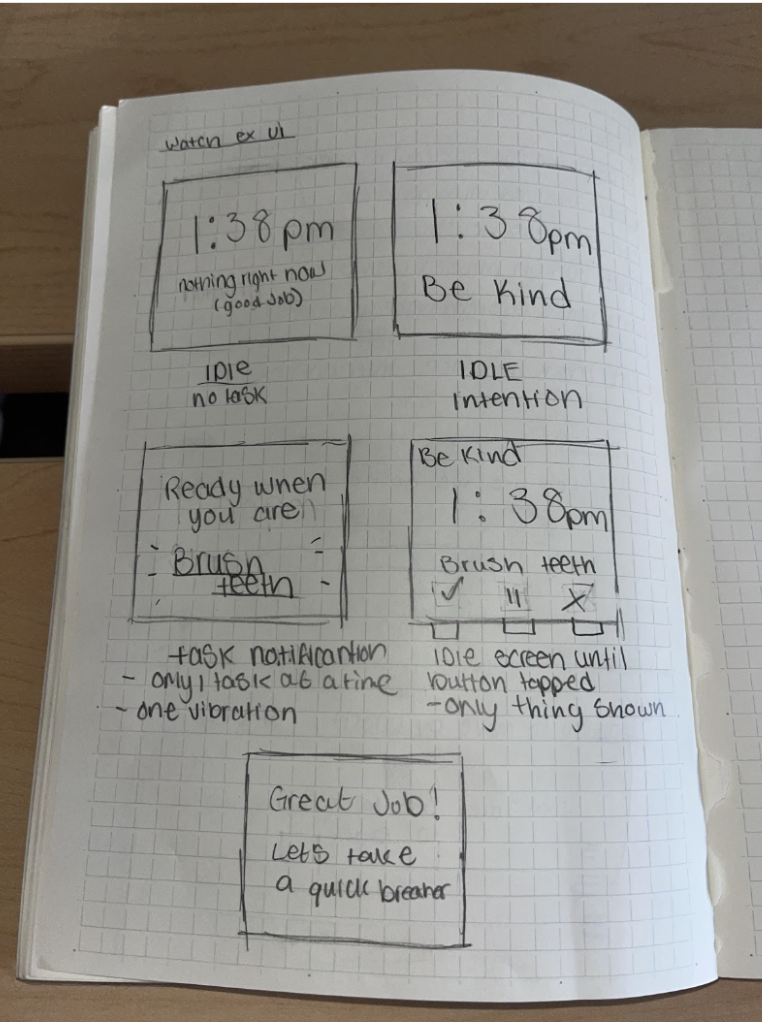 Watch ex UI
1:38pm
nothing right now
(good Job)
IDle
no task
1:38pm
Be Kind
IDLE
intention
Ready when
you are
Brush
teeth
task notification
- only 1 task at a time
- one vibration
Be Kind
1:38pm
Brush teeth
✓ || X
IDle screen until
button tapped
- only thing shown
Great Job!
Lets take
a quick breather